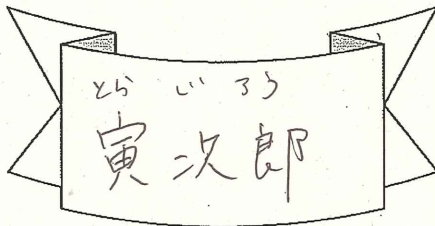 とら じ ろう
寅次郎